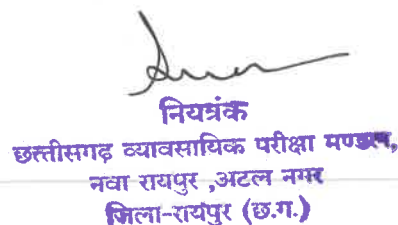 नियत्रंक
छत्तीसगढ़ व्यावसायिक परीक्षा मण्डल,
नवा रायपुर ,अटल नगर
जिला-रायपुर (छ.ग.)